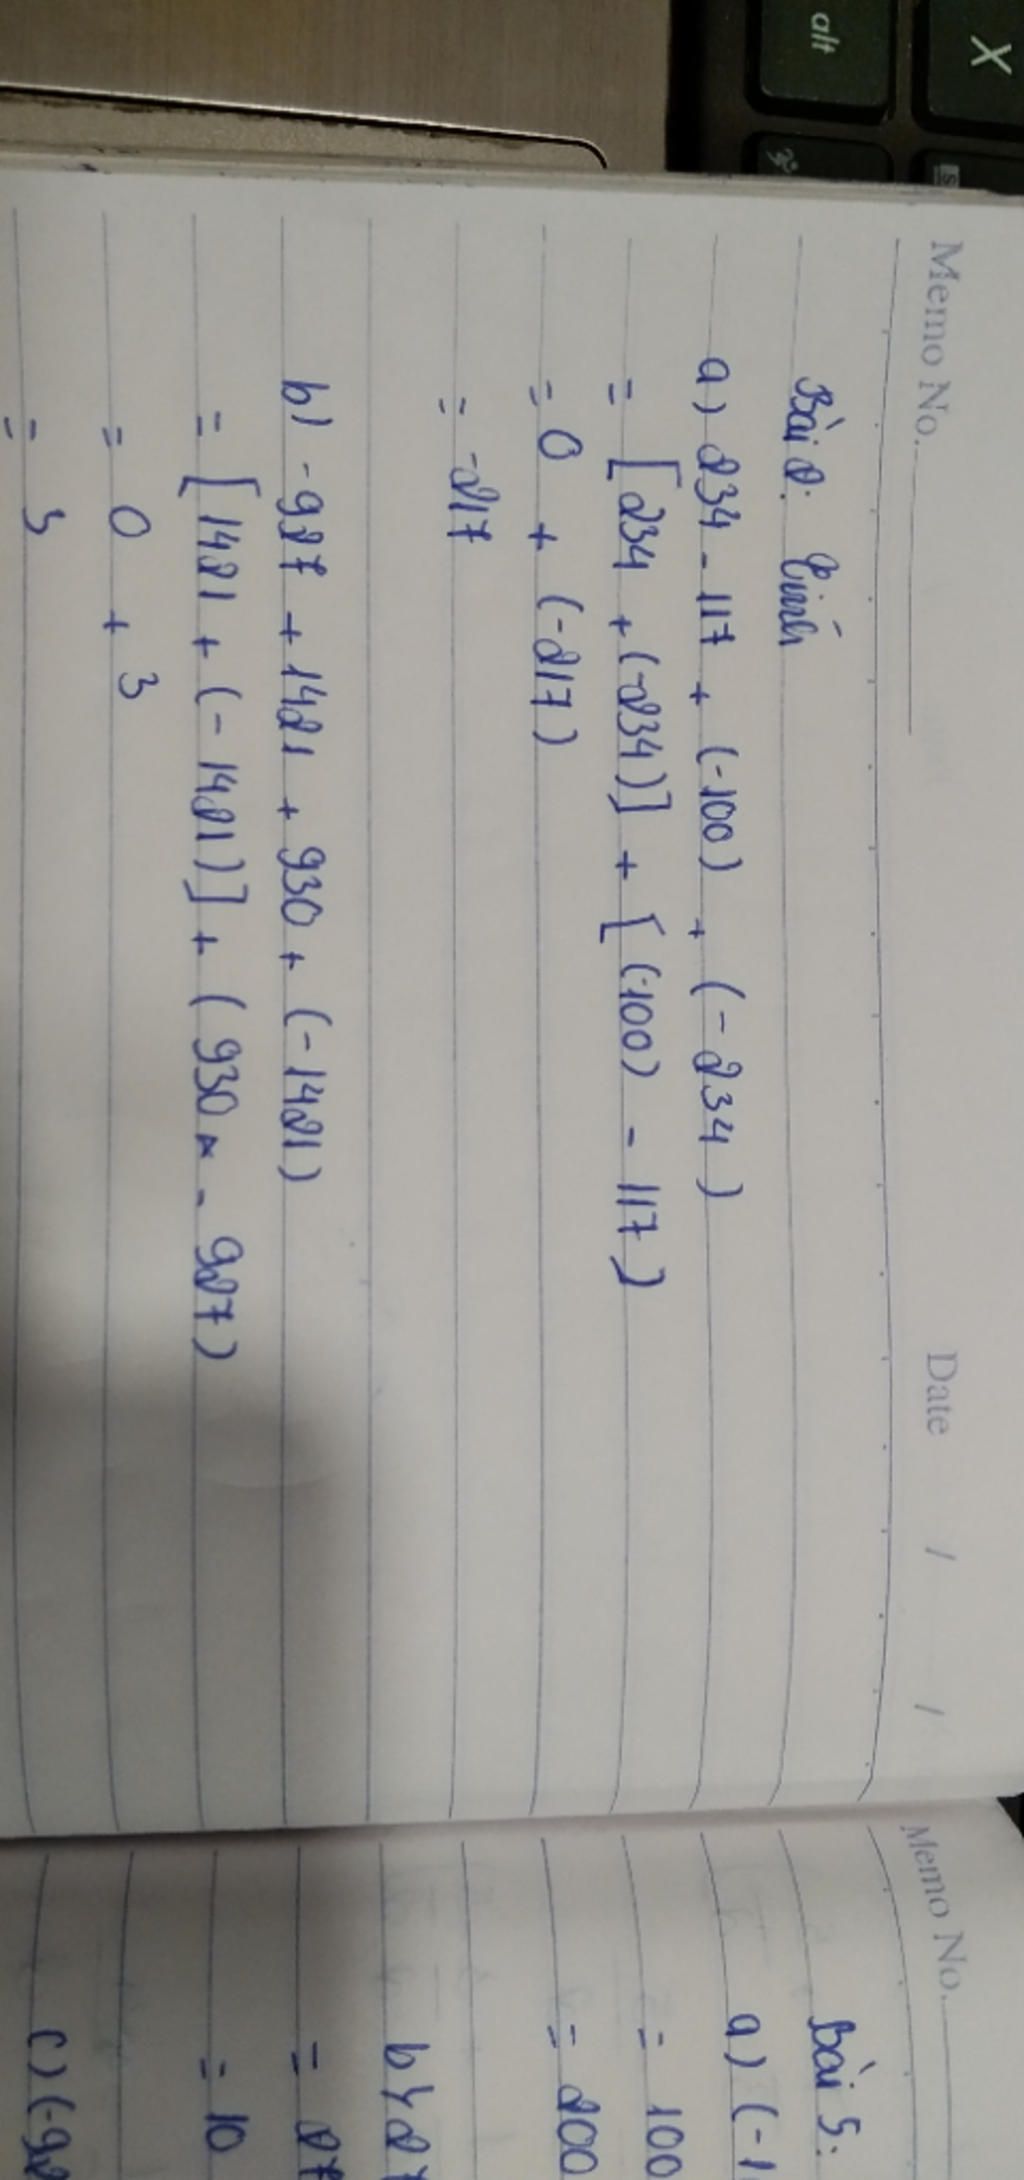 X
alt
Memo No.
Date / /
Bài 2: Tính
a) 234 - 117 + (-100) + (-234)
= [234 + (-234)] + [(-100) - 117]
= 0 + (-217)
= -217
b) -927 + 1421 + 930 + (-1421)
= [1421 + (-1421)] + (930 - 927)
= 0 + 3
= 3
Memo No.
Bài 5:
a) (-1
= 100
= 200
b) 27
= 27
= 10
c) (-92